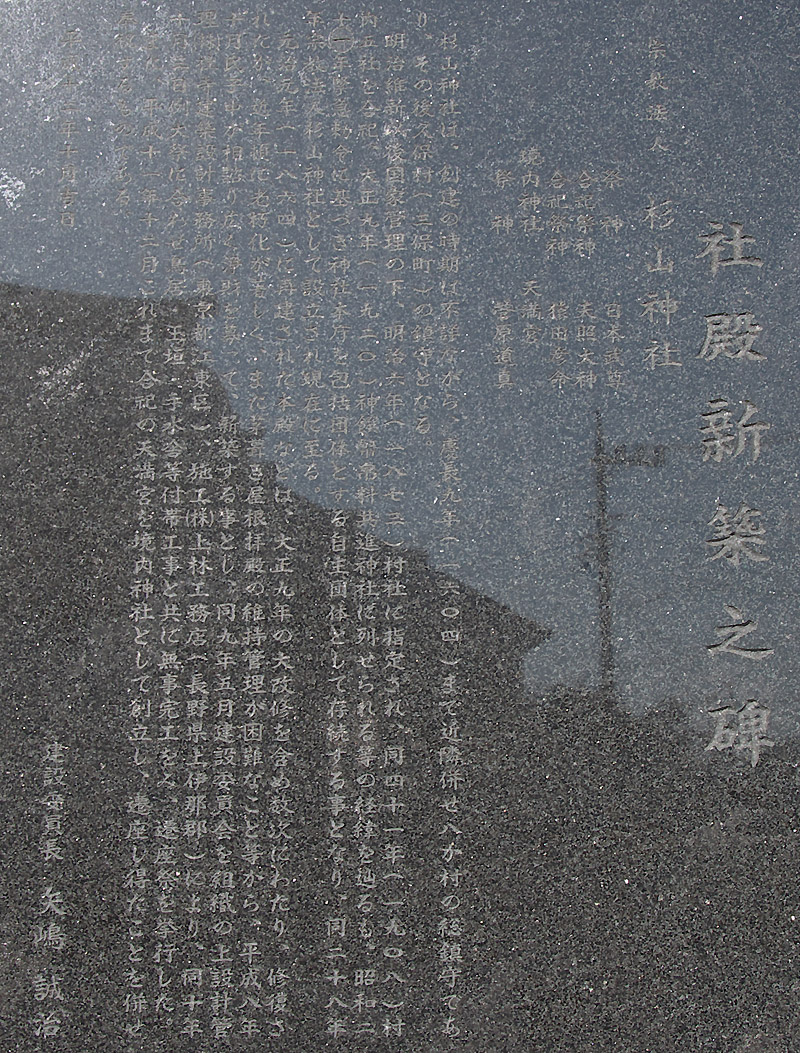 社殿新築之碑
宗教法人
杉山神社
祭神 日本武尊
合祀祭神 天照大神
合祀祭神 猿田彦命
境内神社 天満宮
祭神 菅原道真
杉山神社は、創建の時期は不詳乍から、慶長九年(一六〇四)まで近隣併せ八か村の総鎮守であ
り、その後久保村(三保町)の鎮守となる。
明治維新以後国家管理の下、明治六年(一八七三)村社に指定され、同四十一年(一九〇八)村
内五社を合祀、大正九年(一九二〇)神饌幣帛料共進神社に列せられる等の経緯を辿るも、昭和二
十一年勅令に基づき神社本庁を包括団体とする自主団体として存続する事となり、同二十八年
宗教法人杉山神社として設立され現在に至る
元治元年(一八六四)に再建された本殿などは、大正九年の大改修を含め数次にわたり、修復さ
れたが、近年頓に老朽化が著しく、また茅葺き屋根拝殿の維持管理が困難なこと等から、平成八年
十月氏子中が相諮り広く浄財を募って、新築する事とし、同九年五月建設委員会を組織の上設計管
理 建築設計事務所(東京都江東区)、施工(株)上林工務店(長野県上伊那郡)により、同十年
十月 例大祭に合わせ鳥居、玉垣、手水舎等付帯工事と共に無事完工をみ、遷座祭を挙行した。
また、平成十一年十二月これまで合祀の天満宮を境内神社として創立し、遷座し得たことを併せ
十二年十月吉日
建設委員長 矢嶋誠治